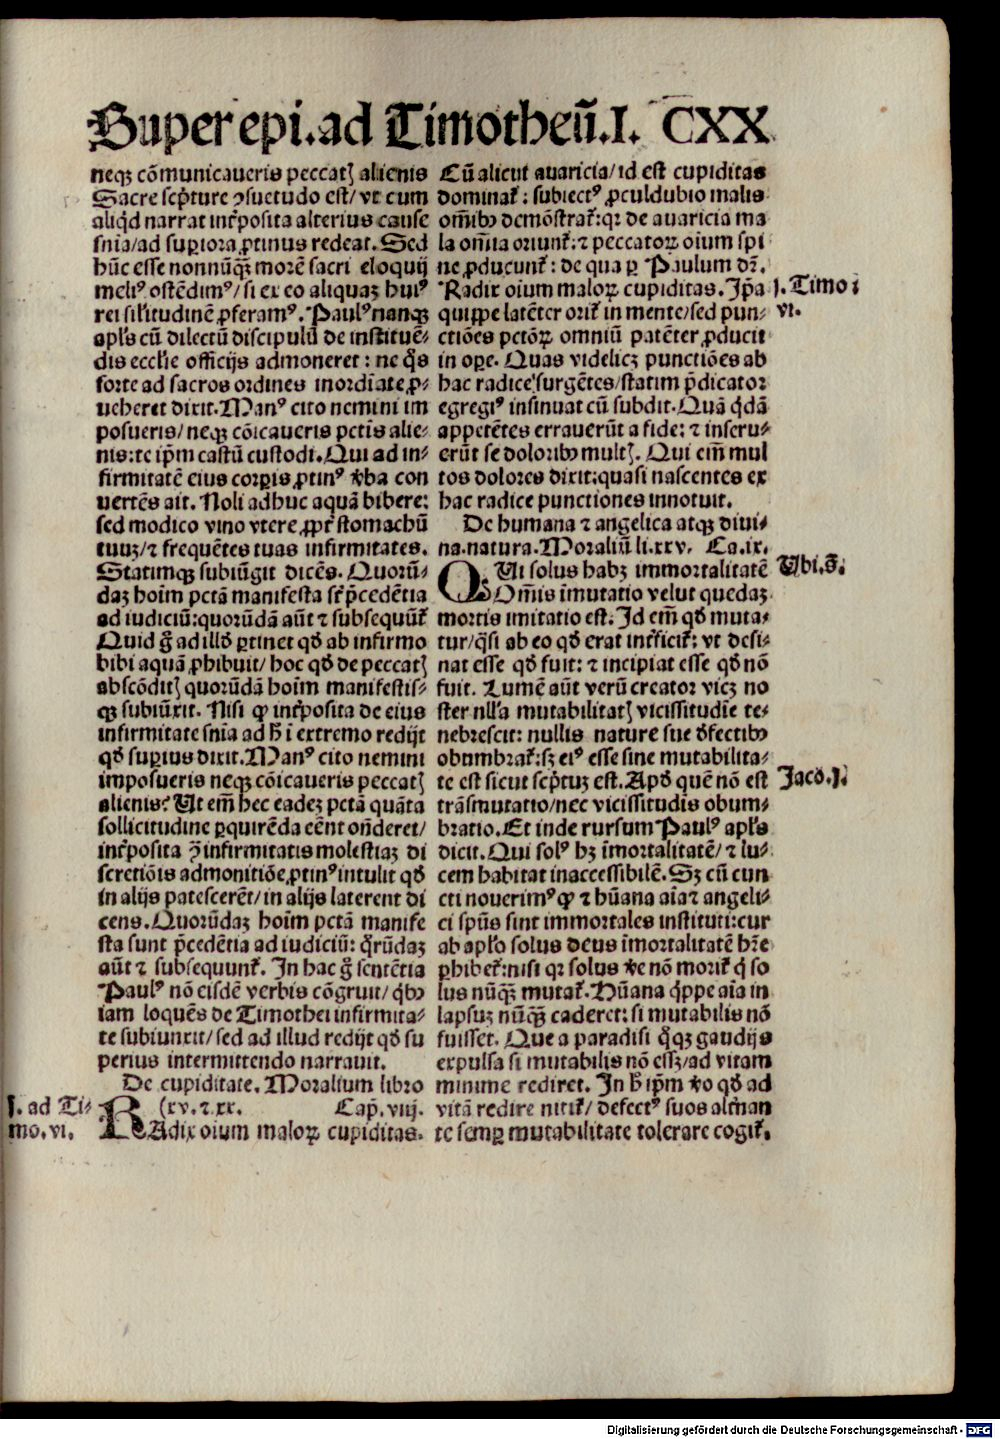 Super epi. ad Timotheū. I. CXX
neqꝫ cōmunicaueris peccatꝭ alienis
Sacre scp̄ture ꝯsuetudo est/ vt cum
aliq̇d narrat int̄posita alterius cause
sn̄ia/ad suꝑiora ꝓtinus redeat. Sed
hūc esse nonnūqꝫ morē sacri eloquij
meliꝰ ostēdimꝰ/ si ex eo aliquaꝫ huiꝰ
rei sil̓itudinē ꝓferamꝰ. Paulꝰ nanqꝫ
apl̓s cū dilectū discipulū de instituē-
dis eccl̓ie officijs admoneret: ne q̇s
forte ad sacros ordines inordīate ꝓ-
ueheret dixit. Manꝰ cito nemini im
posueris/ neqꝫ cōicaueris pctīs alie-
nis: te ip̄m castū custodi. Qui ad in-
firmitatē eius corꝑis ꝓtinꝰ v̓ba con
uertēs ait. Noli adhuc aquā bibere:
sed modico vino vtere ꝓpt̓ stomachū
tuuꝫ/ ⁊ frequētes tuas infirmitates.
Statimqꝫ subiūgit dicēs. Quorū-
daꝫ hoīm pctā manifesta st̄ p̄cedētia
ad iudiciū: quorūdā aūt ⁊ subsequūt̄
Quid g̊ ad illd̓ ꝑtinet qd̓ ab infirmo
bibi aquā ꝓhibuit/ hoc qd̓ de peccatꝭ
abscōditꝭ quorūdā hoīm manifestis-
qꝫ subiūxit. Nisi ꝙ int̄posita de eius
infirmitate sn̄ia ad h̓ i extremo redijt
qd̓ suꝑius dixit. Manꝰ cito nemini
imposueris neqꝫ cōicaueris peccatꝭ
alienis? Ut em̄ hec eadeꝫ pctā quāta
sollicitudine ꝑquirēda eēnt on̄deret/
int̄posita ꝙ̄ infirmitatis molestiaꝫ di
scretiōis admonitiōe ꝓtinꝰ intulit qd̓
in alijs patescerēt/ in alijs laterent di
cens. Quorūdaꝫ hoīm pctā manife
sta sunt p̄cedētia ad iudiciū: q̊rūdaꝫ
aūt ⁊ subsequunt̄. In hac g̊ sentētia
Paulꝰ nō eisdē verbis cōgruit/ q̇bꝰ
iam loquēs de Timothei infirmita-
te subiunxit/ sed ad illud redijt qd̓ su
perius intermittendo narrauit.
De cupiditate. Moralium libro
(xv. ⁊ xx. Cap. viij.
RAdix oium maloꝝ cupiditas.
j. ad Ti-
mo. vi.
Cū alicui auaricia/ id est cupiditas
dominat̄: subiectꝰ ꝓculdubio malis
om̄ibꝰ demōstrat̄: qꝛ de auaricia ma
la om̄ia oriunt̄: ⁊ peccatoꝝ oium spi
ne ꝓducunt̄: de qua ꝑ Paulum dꝛ̄.
Radix oium maloꝝ cupiditas. Ip̄a
quippe latēter orit̄ in mente/ sed pun-
ctiōes pctōꝝ omniū patēter ꝓducit
in oꝑe. Quas videlicꝫ punctiōes ab
hac radice surgētes/ statim p̄dicator
egregiꝰ insinuat cū subdit. Quā q̇dā
appetētes errauerūt a fide: ⁊ inseru-
erūt se doloribꝰ multꝭ. Qui em̄ mul
tos dolores dixit: quasi nascentes ex
hac radice punctiones innotuit.
De humana ⁊ angelica atqꝫ diui-
na natura. Moraliū li. xxv. Ca. ix.
QUi solus habꝫ immortalitatē
Om̄is imutatio velut quedaꝫ
mortis imitatio est. Id em̄ qd̓ muta-
tur/ q̇si ab eo qd̓ erat int̄ficit̄: vt desi-
nat esse qd̓ fuit: ⁊ incipiat esse qd̓ nō
fuit. Lumē aūt verū creator vicꝫ no
ster nll̓a mutabilitatꝭ vicissitudīe te-
nebrescit: nullis nature sue d̓fectibꝰ
obumbrat̄: sꝫ eiꝰ esse sine mutabilita-
te est sicut scp̄tuꝫ est. Apd̓ quē nō est
trāsmutatio/ nec vicissitudis obum-
bratio. Et inde rursum Paulꝰ apl̓s
dicit. Qui solꝰ hꝫ īmortalitatē/ ⁊ lu-
cem habitat inaccessibilē. Sꝫ cū cun
cti nouerimꝰ ꝙ ⁊ hūana aīa ⁊ angeli-
ci spūs sint immortales instituti: cur
ab apl̓o solus deus īmortalitatē hr̄e
ꝑhibet̄: nisi qꝛ solus v̓e nō morit̄ q̇ so
lus nūqꝫ mutat̄. Hūana q̇ppe aīa in
lapsuꝫ nūqꝫ caderet: si mutabilis nō
fuisset. Que a paradisi q̇qꝫ gaudijs
expulsa si mutabilis nō essꝫ/ ad vitam
minime rediret. In h̓ ip̄m v̓o qd̓ ad
vitā redire nitit̄/ defectꝰ suos alt̓nan
te semꝑ mutabilitate tolerare cogit̄.
j. Timo:
vi.
Ubi. s̄.
Jaco. j.
Digitalisierung gefördert durch die Deutsche Forschungsgemeinschaft - DFG